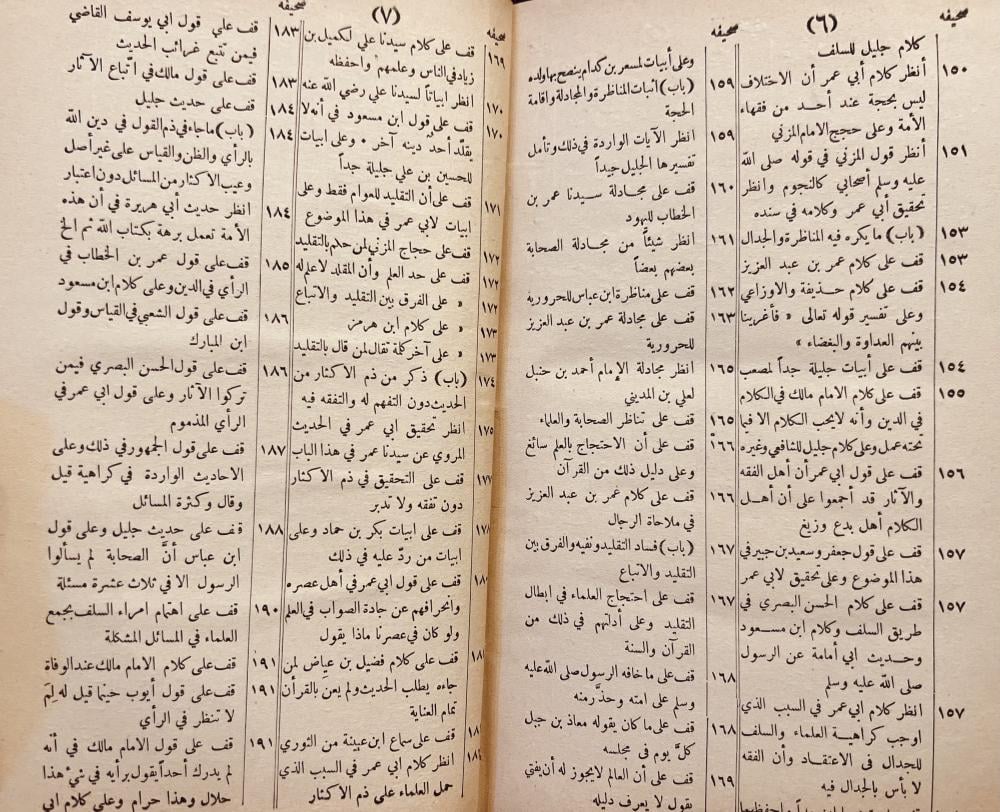 صحيفه
(٦)
صحيفه
كلام جليل للسلف
١٥٠ أنظر كلام أبي عمر أن الاختلاف
ليس بحجة عند أحد من فقهاء
الأمة وعلى حجج الامام المزني
١٥١ أنظر قول المزني في قوله صلى الله
عليه وسلم أصحابي كالنجوم وانظر
تحقيق أبي عمر وكلامه في سنده
١٥٣ (باب) ما يكره فيه المناظرة والجدال
١٥٣ قف على كلام عمر بن عبد العزيز
١٥٤ قف على كلام حذيفة والاوزاعي
وعلى تفسير قوله تعالى « فأغرينا
بينهم العداوة والبغضاء »
١٥٤ قف على أبيات جليلة جداً لمصعب
١٥٥ قف على كلام الامام مالك في الكلام
في الدين وأنه لا يحب الكلام الا فيما
تحته عمل وعلى كلام جليل للشافعي وغيره
١٥٦ قف على قول ابي عمر أن أهل الفقه
والآثار قد أجمعوا على أن أهل
الكلام أهل بدع وزيغ
١٥٧ قف على قول جعفر وسعيد بن جبير في
هذا الموضوع وعلى تحقيق لابي عمر
١٥٧ قف على كلام الحسن البصري في
طريق السلف وكلام ابن مسعود
وحديث ابي أمامة عن الرسول
صلى الله عليه وسلم
١٥٧ انظر كلام ابي عمر في السبب الذي
اوجب كراهية العلماء والسلف
للجدال فى الاعتقاد وأن الفقه
لا بأس بالجدال فيه
وعلى أبيات لمسعر بن كدام ينصح بها ولده
١٥٩ (باب) أثبات المناظرة والمجادلة واقامة
الحجة
١٥٩ انظر الآيات الواردة في ذلك وتأمل
تفسيرها الجليل جيداً
١٦٠ قف على مجادلة سيدنا عمر بن
الخطاب لليهود
١٦١ انظر شيئاً من مجادلة الصحابة
بعضهم بعضاً
١٦٢ قف على مناظرة ابن عباس للحرورية
١٦٣ قف على مجادلة عمر بن عبد العزيز
للحرورية
١٦٥ انظر مجادلة الإمام أحمد بن حنبل
لعلي بن المديني
١٦٥ قف على تناظر الصحابة والعلماء
١٦٦ قف على أن الاحتجاج بالعلم سائغ
وعلى دليل ذلك من القرآن
١٦٦ قف على كلام عمر بن عبد العزيز
في ملاحاة الرجال
١٦٧ (باب) فساد التقليد ونفيه والفرق بين
التقليد والاتباع
١٦٧ قف على احتجاج العلماء في ابطال
التقليد وعلى أدلتهم في ذلك من
القرآن والسنة
١٦٨ قف على ما خافه الرسول صلى الله عليه
وسلم على امته وحذّر منه
١٦٨ قف على ما كان يقوله معاذ بن جبل
كلّ يوم في مجلسه
١٦٩ قف على أن العالم لا يجوز له أن يفتي
بقول لا يعرف دليله
صحيفه
(٧)
صحيفه
١٦٩ قف على كلام سيدنا علي لكميل بن
زياد في الناس وعلمهم واحفظه
١٧٠ انظر ابياتاً لسيدنا علي رضي الله عنه
١٧٠ قف على قول ابن مسعود في أنه لا
يقلّد أحدٌ دينه آخر . وعلى ابيات
للحسين بن علي جليلة جداً
١٧١ قف على أن التقليد للعوام فقط وعلى
ابيات لابي عمر في هذا الموضوع
١٧٢ قف على حجاج المزني لمن حكم بالتقليد
١٧٢ قف على حد العلم وأن المقلد لا علم له
١٧٢ » على الفرق بين التقليد والاتباع
١٧٣ » على كلام ابن هرمز
١٧٣ » على آخر كلة تقال لمن قال بالتقليد
١٧٤ (باب) ذكر من ذم الاكثار من
الحديث دون التفهم له والتفقه فيه
١٧٥ انظر تحقيق ابي عمر في الحديث
المروي عن سيدنا عمر في هذا الباب
١٧٧ قف على التحقيق في ذم الاكثار
دون تفقه ولا تدبر
١٧٨ قف على ابيات بكر بن حماد وعلى
ابيات من ردّ عليه في ذلك
قف على قول ابي عمر في أهل عصره
وانحرافهم عن جادة الصواب في العلم
ولو كان في عصرنا ماذا يقول
قف على كلام فضيل بن عياض لمن
جاءه يطلب الحديث ولم يعن بالقرأن
تمام العناية
قف على سماع ابن عيينة من الثوري
انظر كلام ابي عمر في السبب الذي
حمل العلماء على ذم الاكثار
١٨٣ قف على قول ابي يوسف القاضي
فيمن تتبع غرائب الحديث
١٨٣ قف على قول مالك في اتّباع الآثار
١٨٤ قف على حديث جليل
١٨٤ (باب) ما جاء في ذم القول في دين الله
بالرأي والظن والقياس على غير أصل
وعيب الاكثار من المسائل دون اعتبار
١٨٤ انظر حديث أبي هريرة في أن هذه
الأمة تعمل برهة بكتاب الله ثم الخ
١٨٥ قف على قول عمر بن الخطاب في
الرأي في الدين وعلى كلام ابن مسعود
١٨٦ قف على قول الشعبي في القياس وقول
ابن المبارك
١٨٦ قف على قول الحسن البصري فيمن
تركوا الآثار وعلى قول ابي عمر في
الرأي المذموم
١٨٧ قف على قول الجمهور في ذلك وعلى
الاحاديث الواردة في كراهية قيل
وقال وكثرة المسائل
١٨٨ قف على حديث جليل وعلى قول
ابن عباس أنّ الصحابة لم يسألوا
الرسول الا في ثلاث عشرة مسئلة
١٩٠ قف على اهتمام امراء السلف بجمع
العلماء في المسائل المشكلة
١٩١ قف على كلام الامام مالك عند الوفاة
١٩١ قف على قول أيوب حينما قيل له لِمَ
لا تنظر في الرأي
١٩١ قف على قول الامام مالك في أنه
لم يدرك أحداً يقول برأيه في شيء هذا
حلال وهذا حرام وعلى كلام ابي